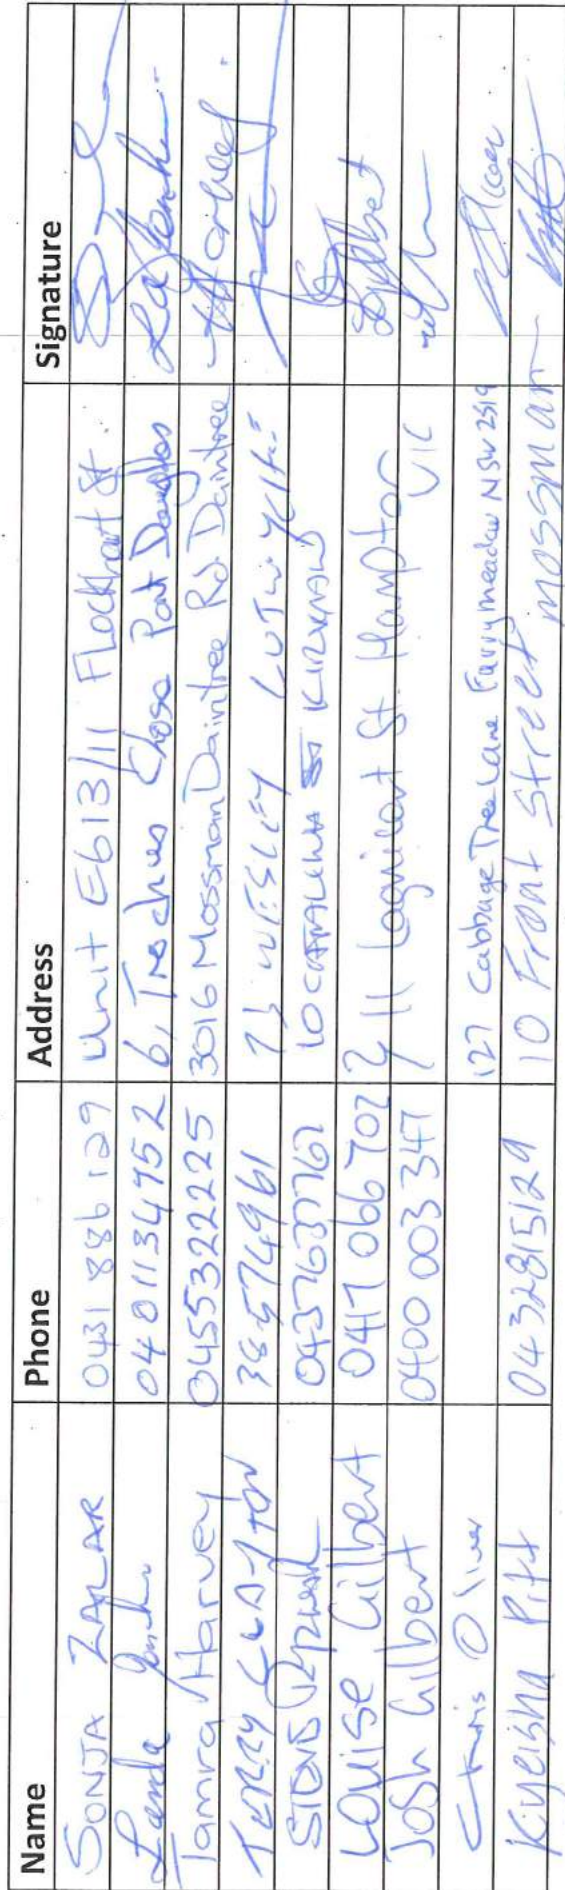 Name Phone Address Signature
SONJA ZALAR 0431 886 129 Unit E613/11 Flockhart St.
0401134952 6, Trochus Close Port Douglas
Tamra Harvey 0455322225 3016 Mossman Daintree Rd. Daintree
TERRY CLAYTON 38574961 WESLEY LUTWYCHE
0437637767 10 CATALINA ST KIRKWOOD
Louise Gilbert 0417 066 702 St. Hampton
Josh Gilbert 0400 003 347 VIC
Chris Oliver 127 Cabbage Tree Lane Fairymeadow NSW 2519
Kyeisha Pitt 0432815129 10 Front Street mossman